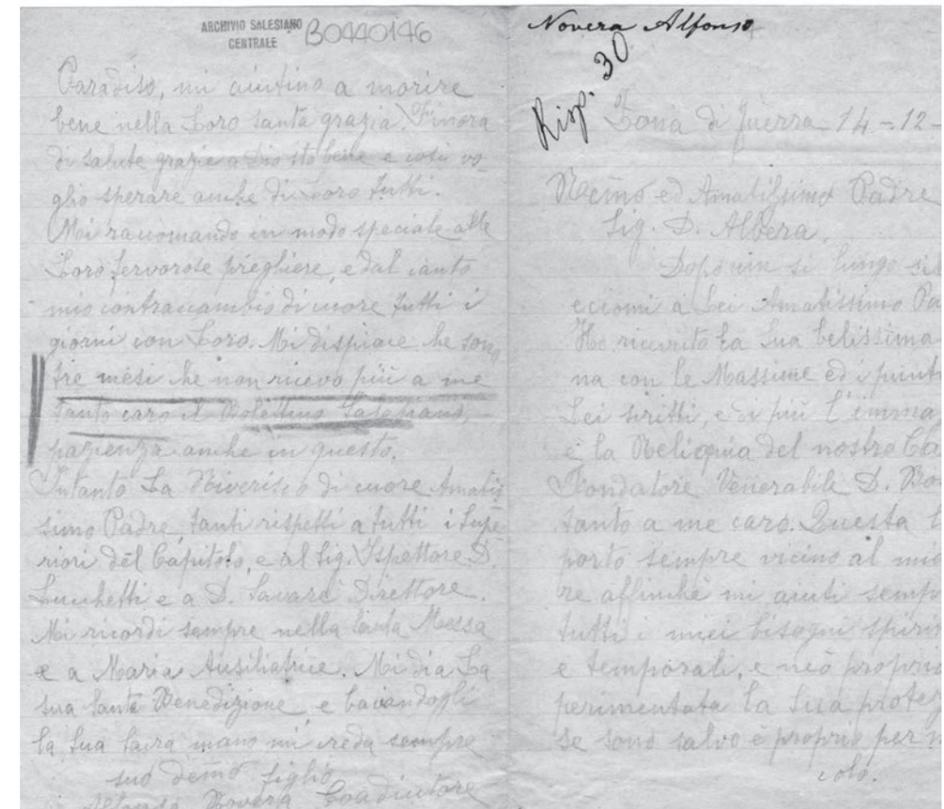 ARCHIVIO SALESIANO
CENTRALE
B0440146
Paradiso, mi aiutino a morire
bene nella Loro santa grazia. Finora
di salute grazie a Dio sto bene e così vo-
glio sperare anche di Loro tutti.
Mi racomando in modo speciale alle
Loro fervorose preghiere, e dal canto
mio contraccambio di cuore tutti i
giorni con Loro. Mi dispiace che sono
tre mesi che non ricevo più a me
tanto caro il Bolettino Salesiano,
pazienza anche in questo.
Intanto La Riverisco di cuore Amatis
simo Padre, tanti rispetti a tutti i Supe
riori del Capitolo, e al Sig. Ispettore D.
Lucchetti e a D. Savarè Direttore.
Mi ricordi sempre nella Santa Messa
e a Maria Ausiliatrice. Mi dia La
sua Santa Benedizione e baciandogli
la Sua Sacra mano mi creda sempre
suo demo figlio
Alfonso Novera Coadiutore
Novera Alfonso
Risp. 30
Zona di Guerra - 14 - 12 -
Rev.mo ed Amatissimo Padre
Sig. D. Albera.
Dopo un sì lungo sil
eccomi a Lei Amatissimo Pa
Ho ricevuto La Sua belissima
na con le Massime ed i
Lei scritti, e di più l'imma
e la Reliquia del nostro Ca
Fondatore Venerabile D. Bos
tanto a me caro. Questa l
porto sempre vicino al mio
re affinchè mi aiuti semp
tutti i miei bisogni spiri
e temporali, e ciò proprio
perimentata La Sua protez
se sono salvo è proprio per m
colo.